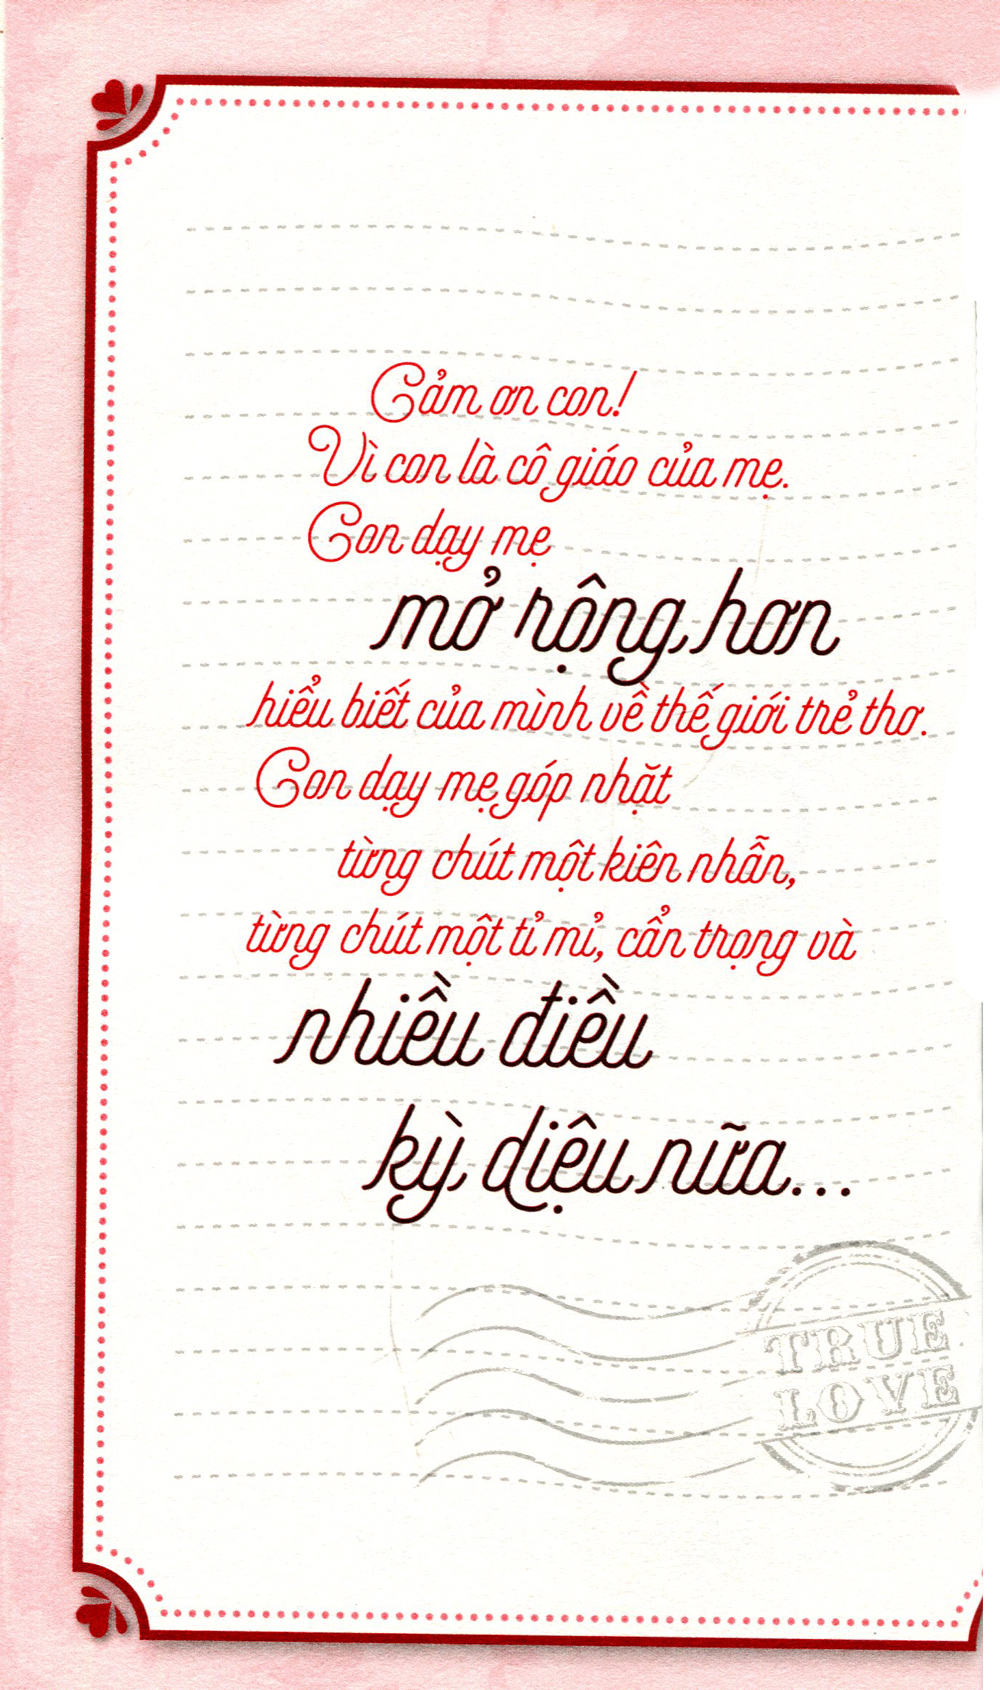 Cảm ơn con!
Vì con là cô giáo của mẹ.
Con dạy mẹ
mở rộng hơn
hiểu biết của mình về thế giới trẻ thơ.
Con dạy mẹ góp nhặt
từng chút một kiên nhẫn,
từng chút một tỉ mỉ, cẩn trọng và
nhiều điều
kỳ diệu nữa...
TRUE
LOVE